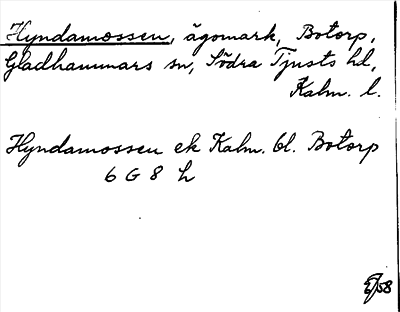 Hyndamossen, ägomark, Botorp,
Gladhammars sn, Södra Tjusts hd,
Kalm. l.
Hyndamossen ek Kalm. bl. Botorp
6 G 8 h
58